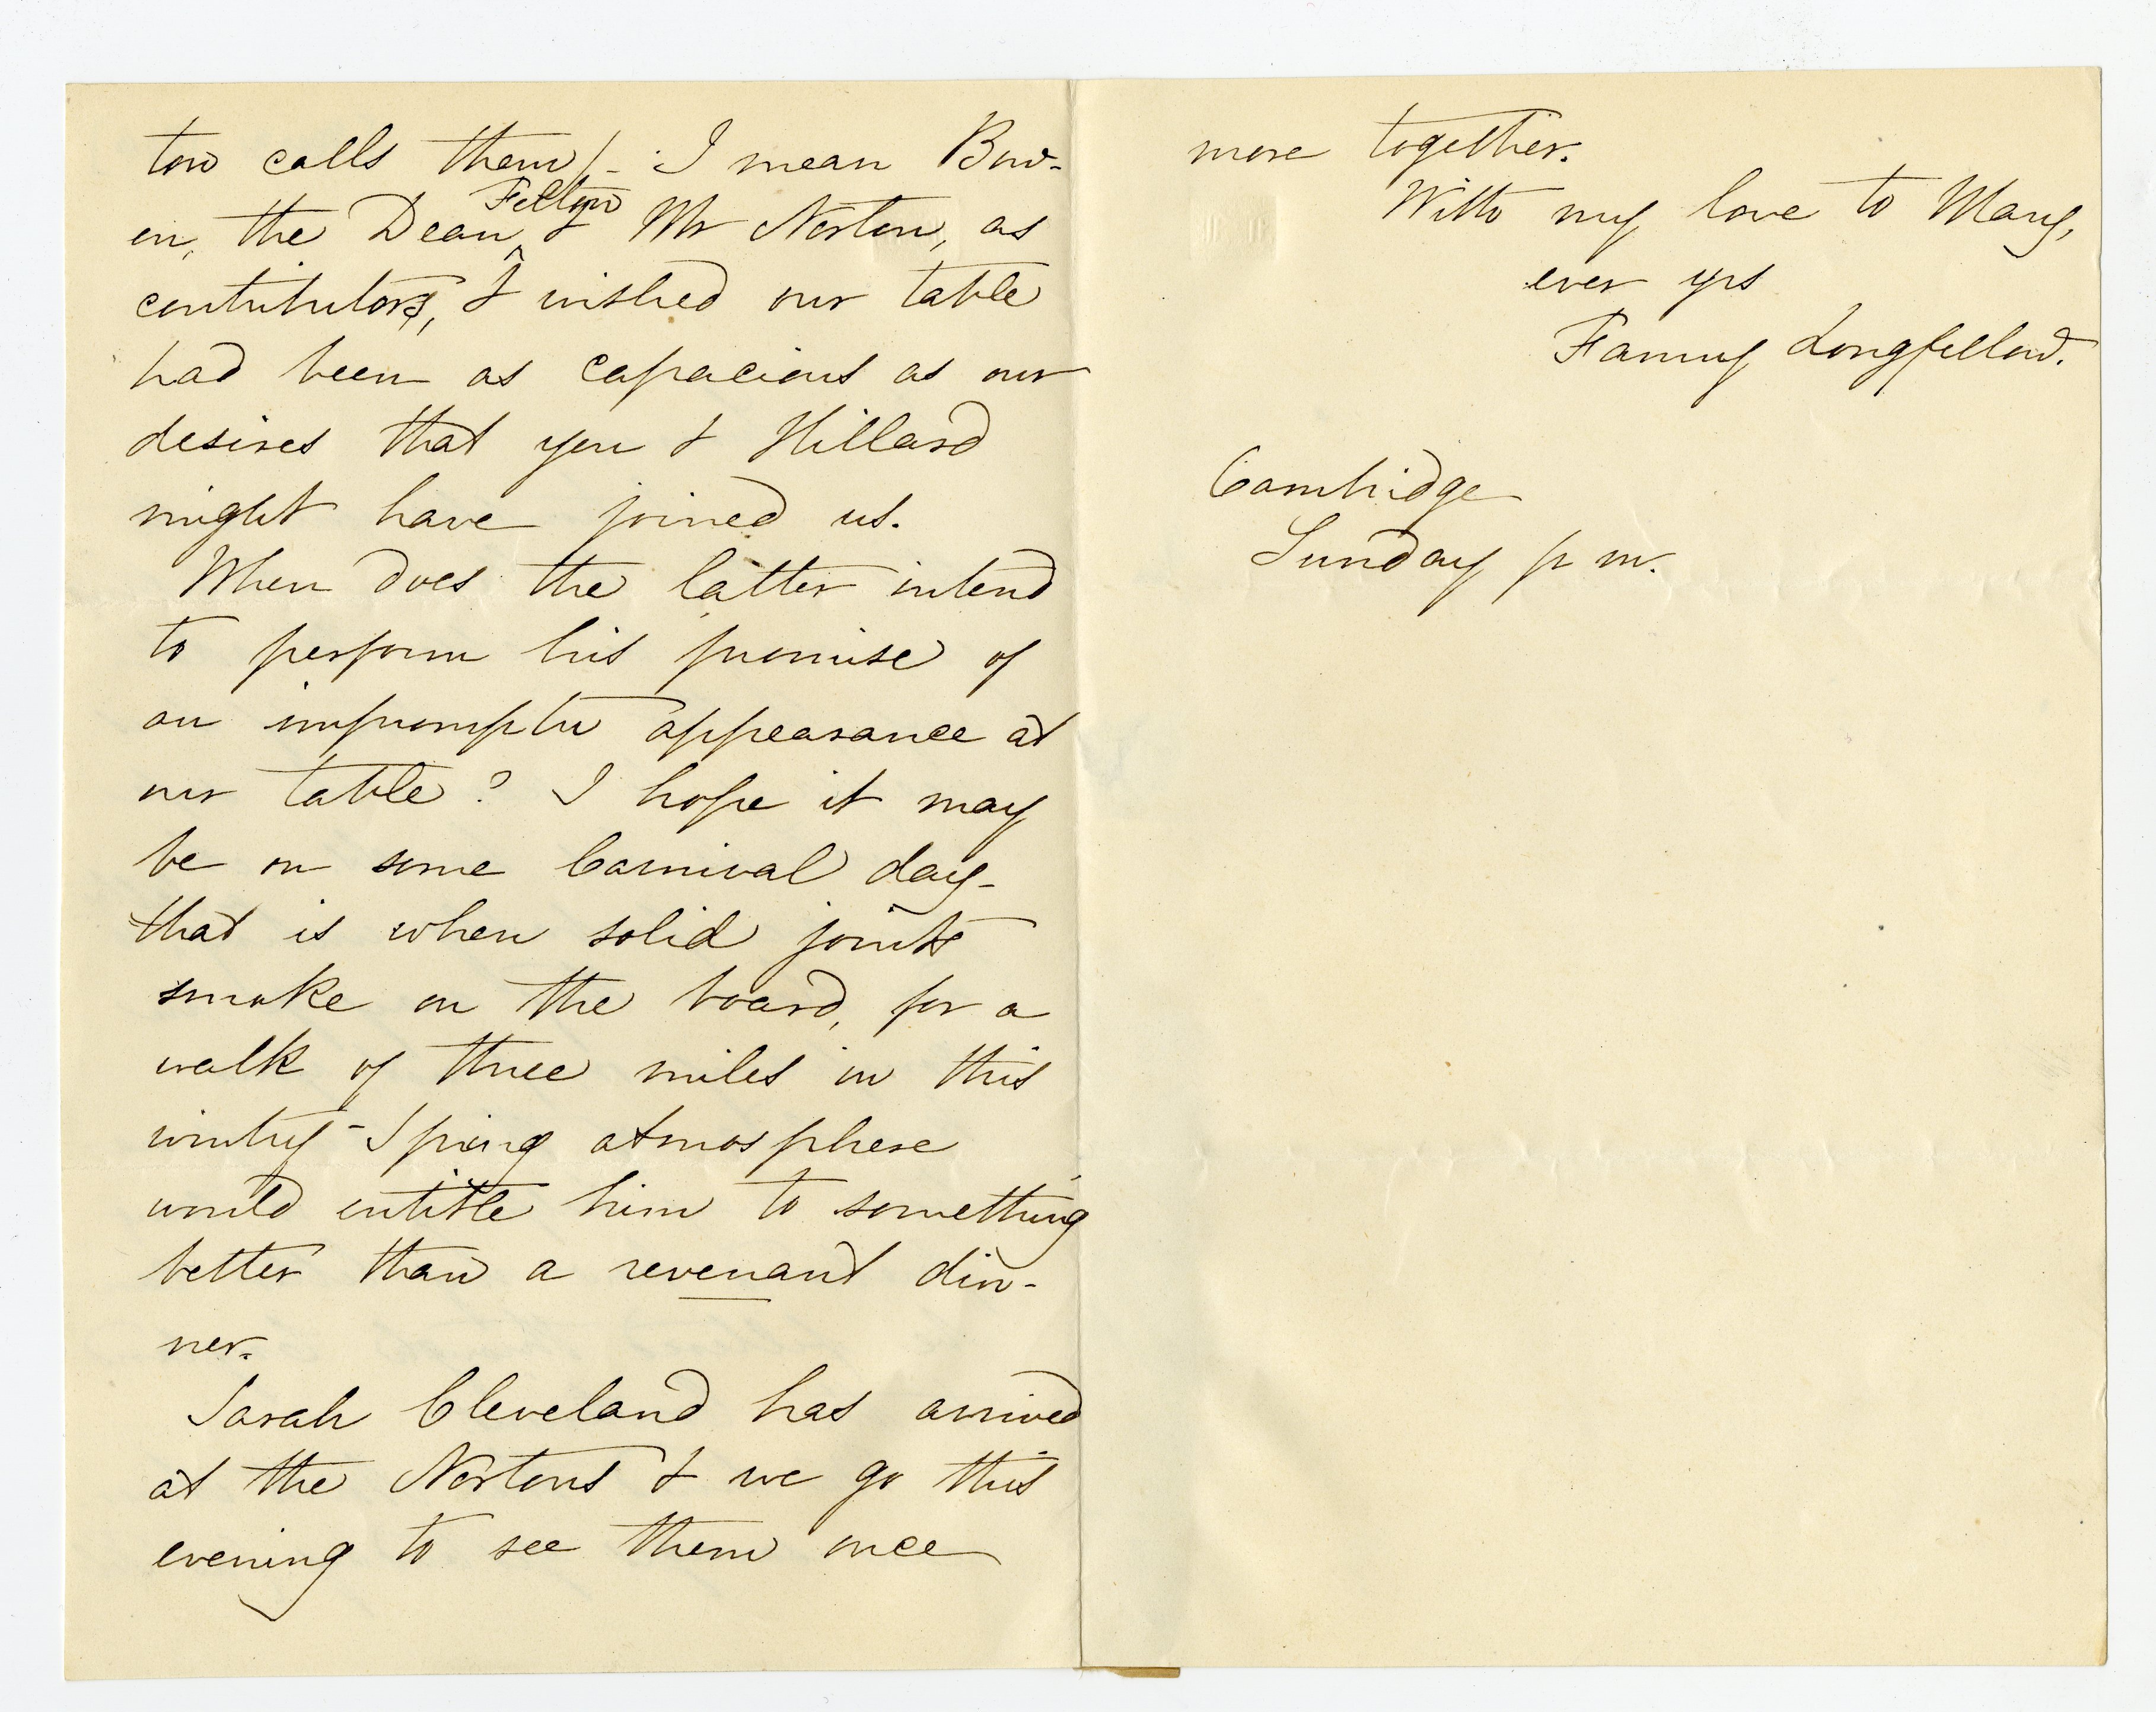 too calls them) - I mean Bow-
en, the Dean, Felton & Mr Norton, as
contributors, & wished our table
had been as capacious as our
desires that you & Hillard
might have joined us.
When does the latter intend
to perform his promise of
an impromptu appearance at
our table? I hope it may
be on some Carnival day -
that is when solid joints
smoke on the board, for a
walk of three miles in this
wintry-Spring atmosphere
would entitle him to something
better than a revenant din-
ner.
Sarah Cleveland has arrived
at the Nortons & we go this
evening to see them once
more together.
With my love to Mary,
ever yrs
Fanny Longfellow.
Cambridge
Sunday p m.